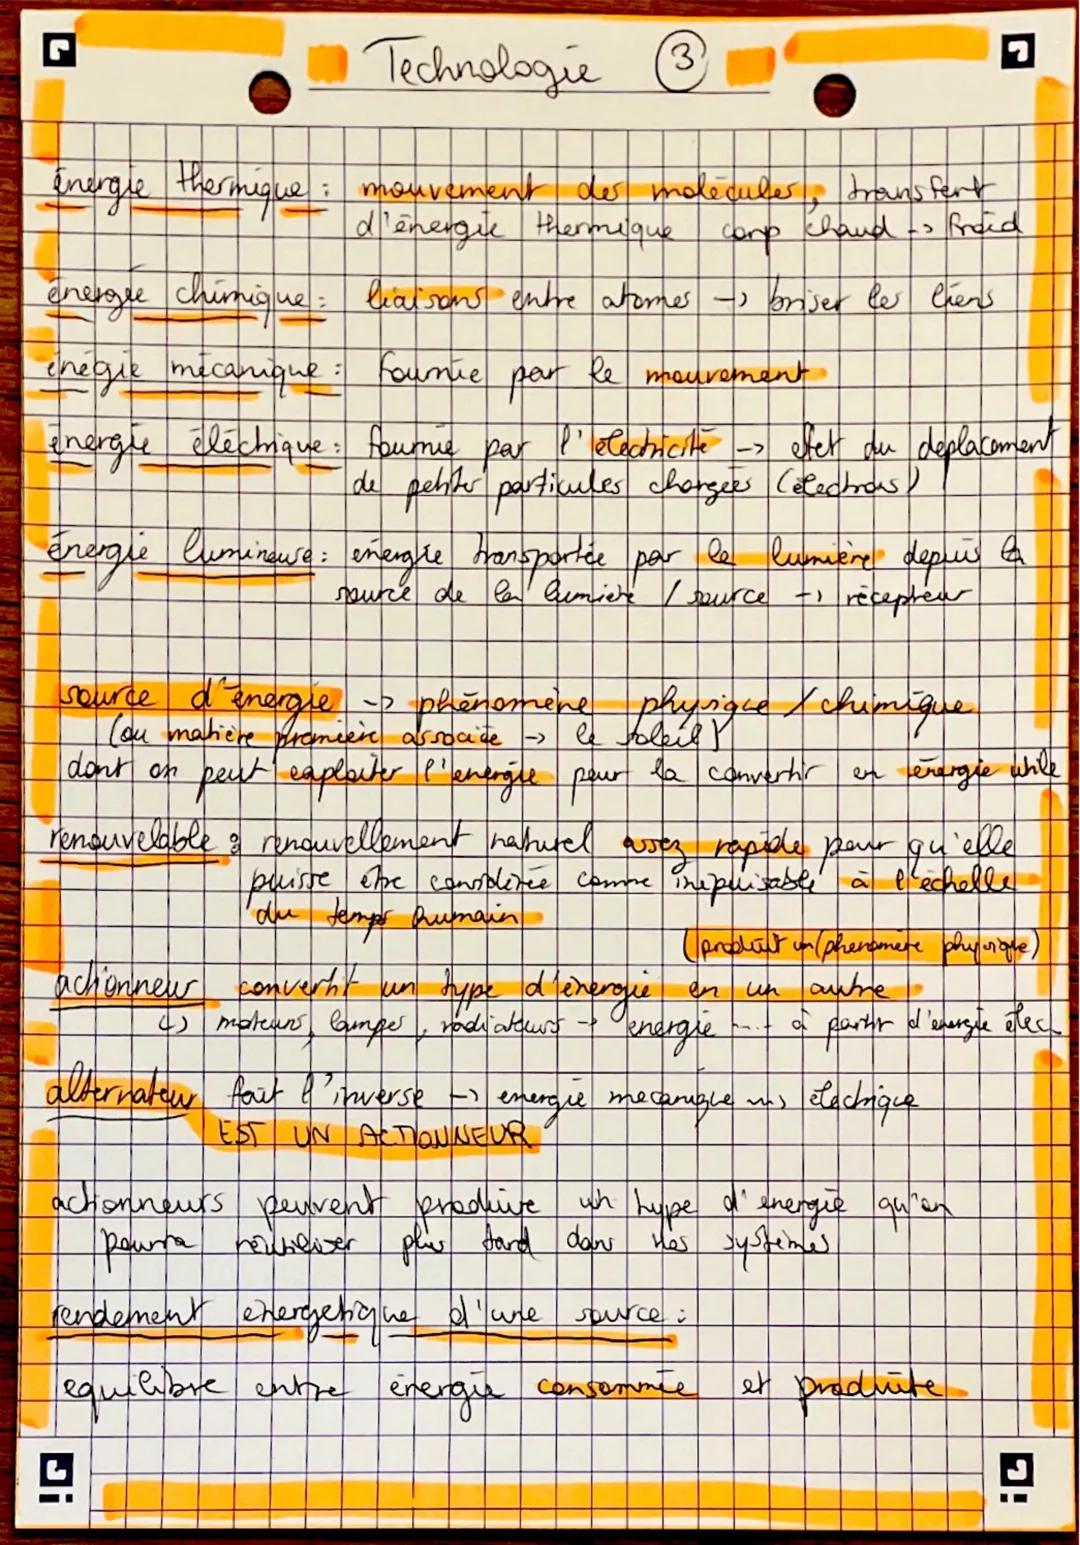 Technologie 3
énergie thermique : mouvement des molécules, transfert
d'énergie thermique corp chaud -> froid
énergie chimique : liaisons entre atomes -> briser les liens
énégie mécanique : fournie par le mouvement
énergie éléctrique : fournie par l'électricité -> effet du déplacement
de petites particules chargées (électrons)
énergie lumineuse : énergie transportée par la lumière depuis la
source de la lumière / source -> récepteur
source d'énergie -> phénomène physique / chimique
(ou matière première associée -> le soleil)
dont on peut exploiter l'énergie pour la convertir en énergie utile
renouvelable : renouvellement naturel assez rapide pour qu'elle
puisse être considérée comme inépuisable à l'échelle
du temps humain
(produit un (phénomène physique)
actionneur convertit un type d'énergie en un autre
↳ moteurs, lampes, radiateurs -> énergie ... à partir d'énergie élec
alternateur fait l'inverse -> énergie mécanique ~> éléctrique
EST UN ACTIONNEUR
actionneurs peuvent produire un type d'énergie qu'on
pourra réutiliser plus tard dans nos systèmes
rendement énergétique d'une source :
équilibre entre énergie consommée et produite